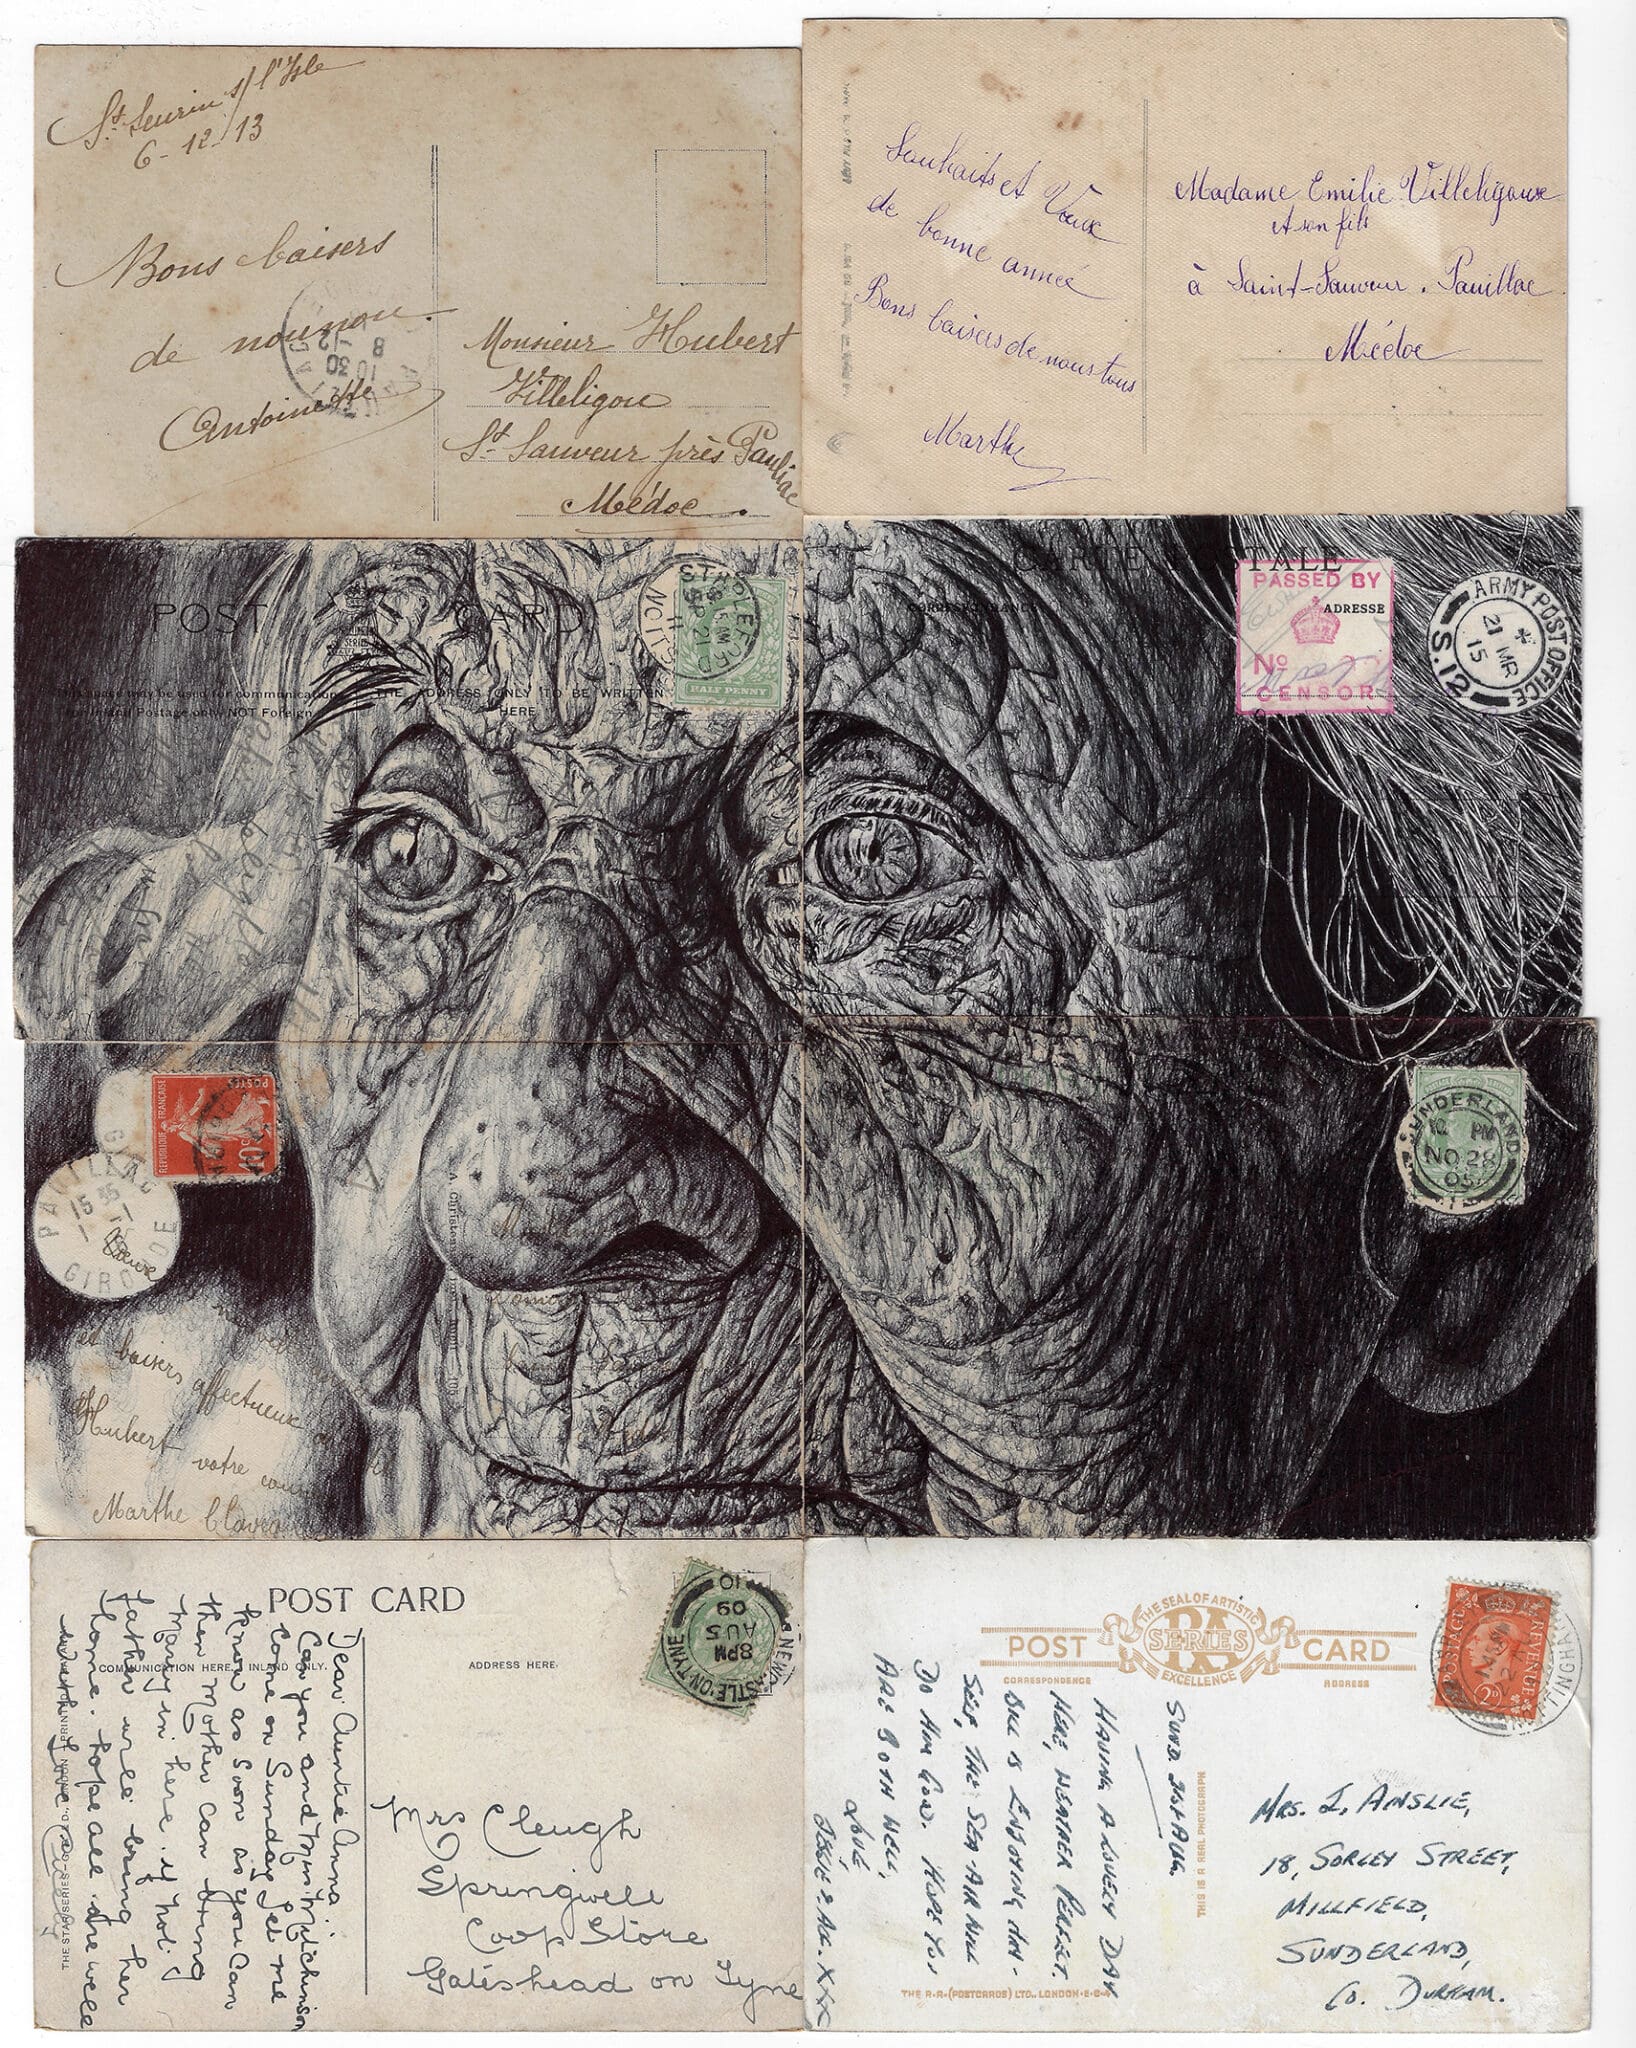 St Seurin s/ l'Isle
6-12-13
Bons baisers
de nounou
Antoinette
Monsieur Hubert
Villeligou
St Sauveur près Pauillac
Médoc.
Souhaits et Vœux
de bonne année
Bons baisers de nous tous
Marthe
Madame Emilie Villeligoux
et son fils
à Saint-Sauveur. Pauillac
Médoc
POST CARD
This space may be used for communication
Inland Postage only, NOT Foreign
THE ADDRESS ONLY TO BE WRITTEN
HERE
HALF PENNY
CARTE POSTALE
CORRESPONDANCE
ADRESSE
PASSED BY
No
CENSOR
ARMY POST OFFICE
21 MR
15
S.12
REPUBLIQUE FRANÇAISE
POSTES
10c
PAUILLAC
GIRONDE
et baisers affectueux
Hubert
votre
Marthe
SUNDERLAND
NO 28
05
POST CARD
COMMUNICATION HERE, INLAND ONLY.
ADDRESS HERE
Dear Auntie Anna.
Can you and Mrs Mitchinson
come on Sunday. Let me
know as soon as you can
then Mother can bring
Mary in here if not
father will bring her
home. hope all are well
with love
NEWCASTLE-ON-TYNE
8 PM
AU 5
09
10
Mrs Cleugh
Springwell
Coop Store
Gateshead on Tyne
THE SEAL OF ARTISTIC
RA
SERIES
EXCELLENCE
POST CARD
CORRESPONDENCE
ADDRESS
POSTAGE REVENUE
2D
SUND. 21ST AUG.
HAVING A LOVELY DAY
HERE, WEATHER PERFECT.
BILL IS ENJOYING HIM-
SELF, THE SEA AIR WILL
DO HIM GOOD. HOPE YOU
ARE BOTH WELL,
LOVE,
THIS IS A REAL PHOTOGRAPH
THE R.A. (POSTCARDS) LTD., LONDON. E.C.4
MRS. I. AINSLIE,
18, SORLEY STREET,
MILLFIELD,
SUNDERLAND,
CO. DURHAM.